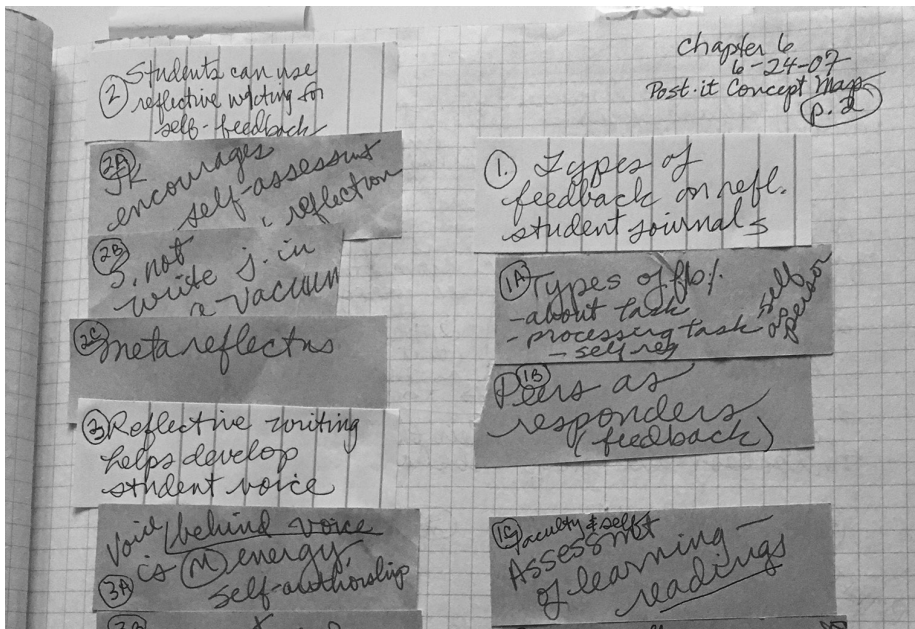 Chapter 6
6-24-07
Post-it Concept Maps
p. 2
2 Students can use
reflective writing for
self-feedback
2A JK
encourages
self-assessmt
reflection
2B S. not
write j. in
a vacuum
2C metareflectns
3 Reflective writing
helps develop
student voice
Voice / behind voice
is M energy,
self-authorship
3A
3B
1. Types of
feedback on refl.
student journals
1A Types of fb/.
- about task
- processing task
- self reg
self
as
person
1B Peers as
responders
(feedback)
1C Faculty & self
Assessmt
of learning —
readings